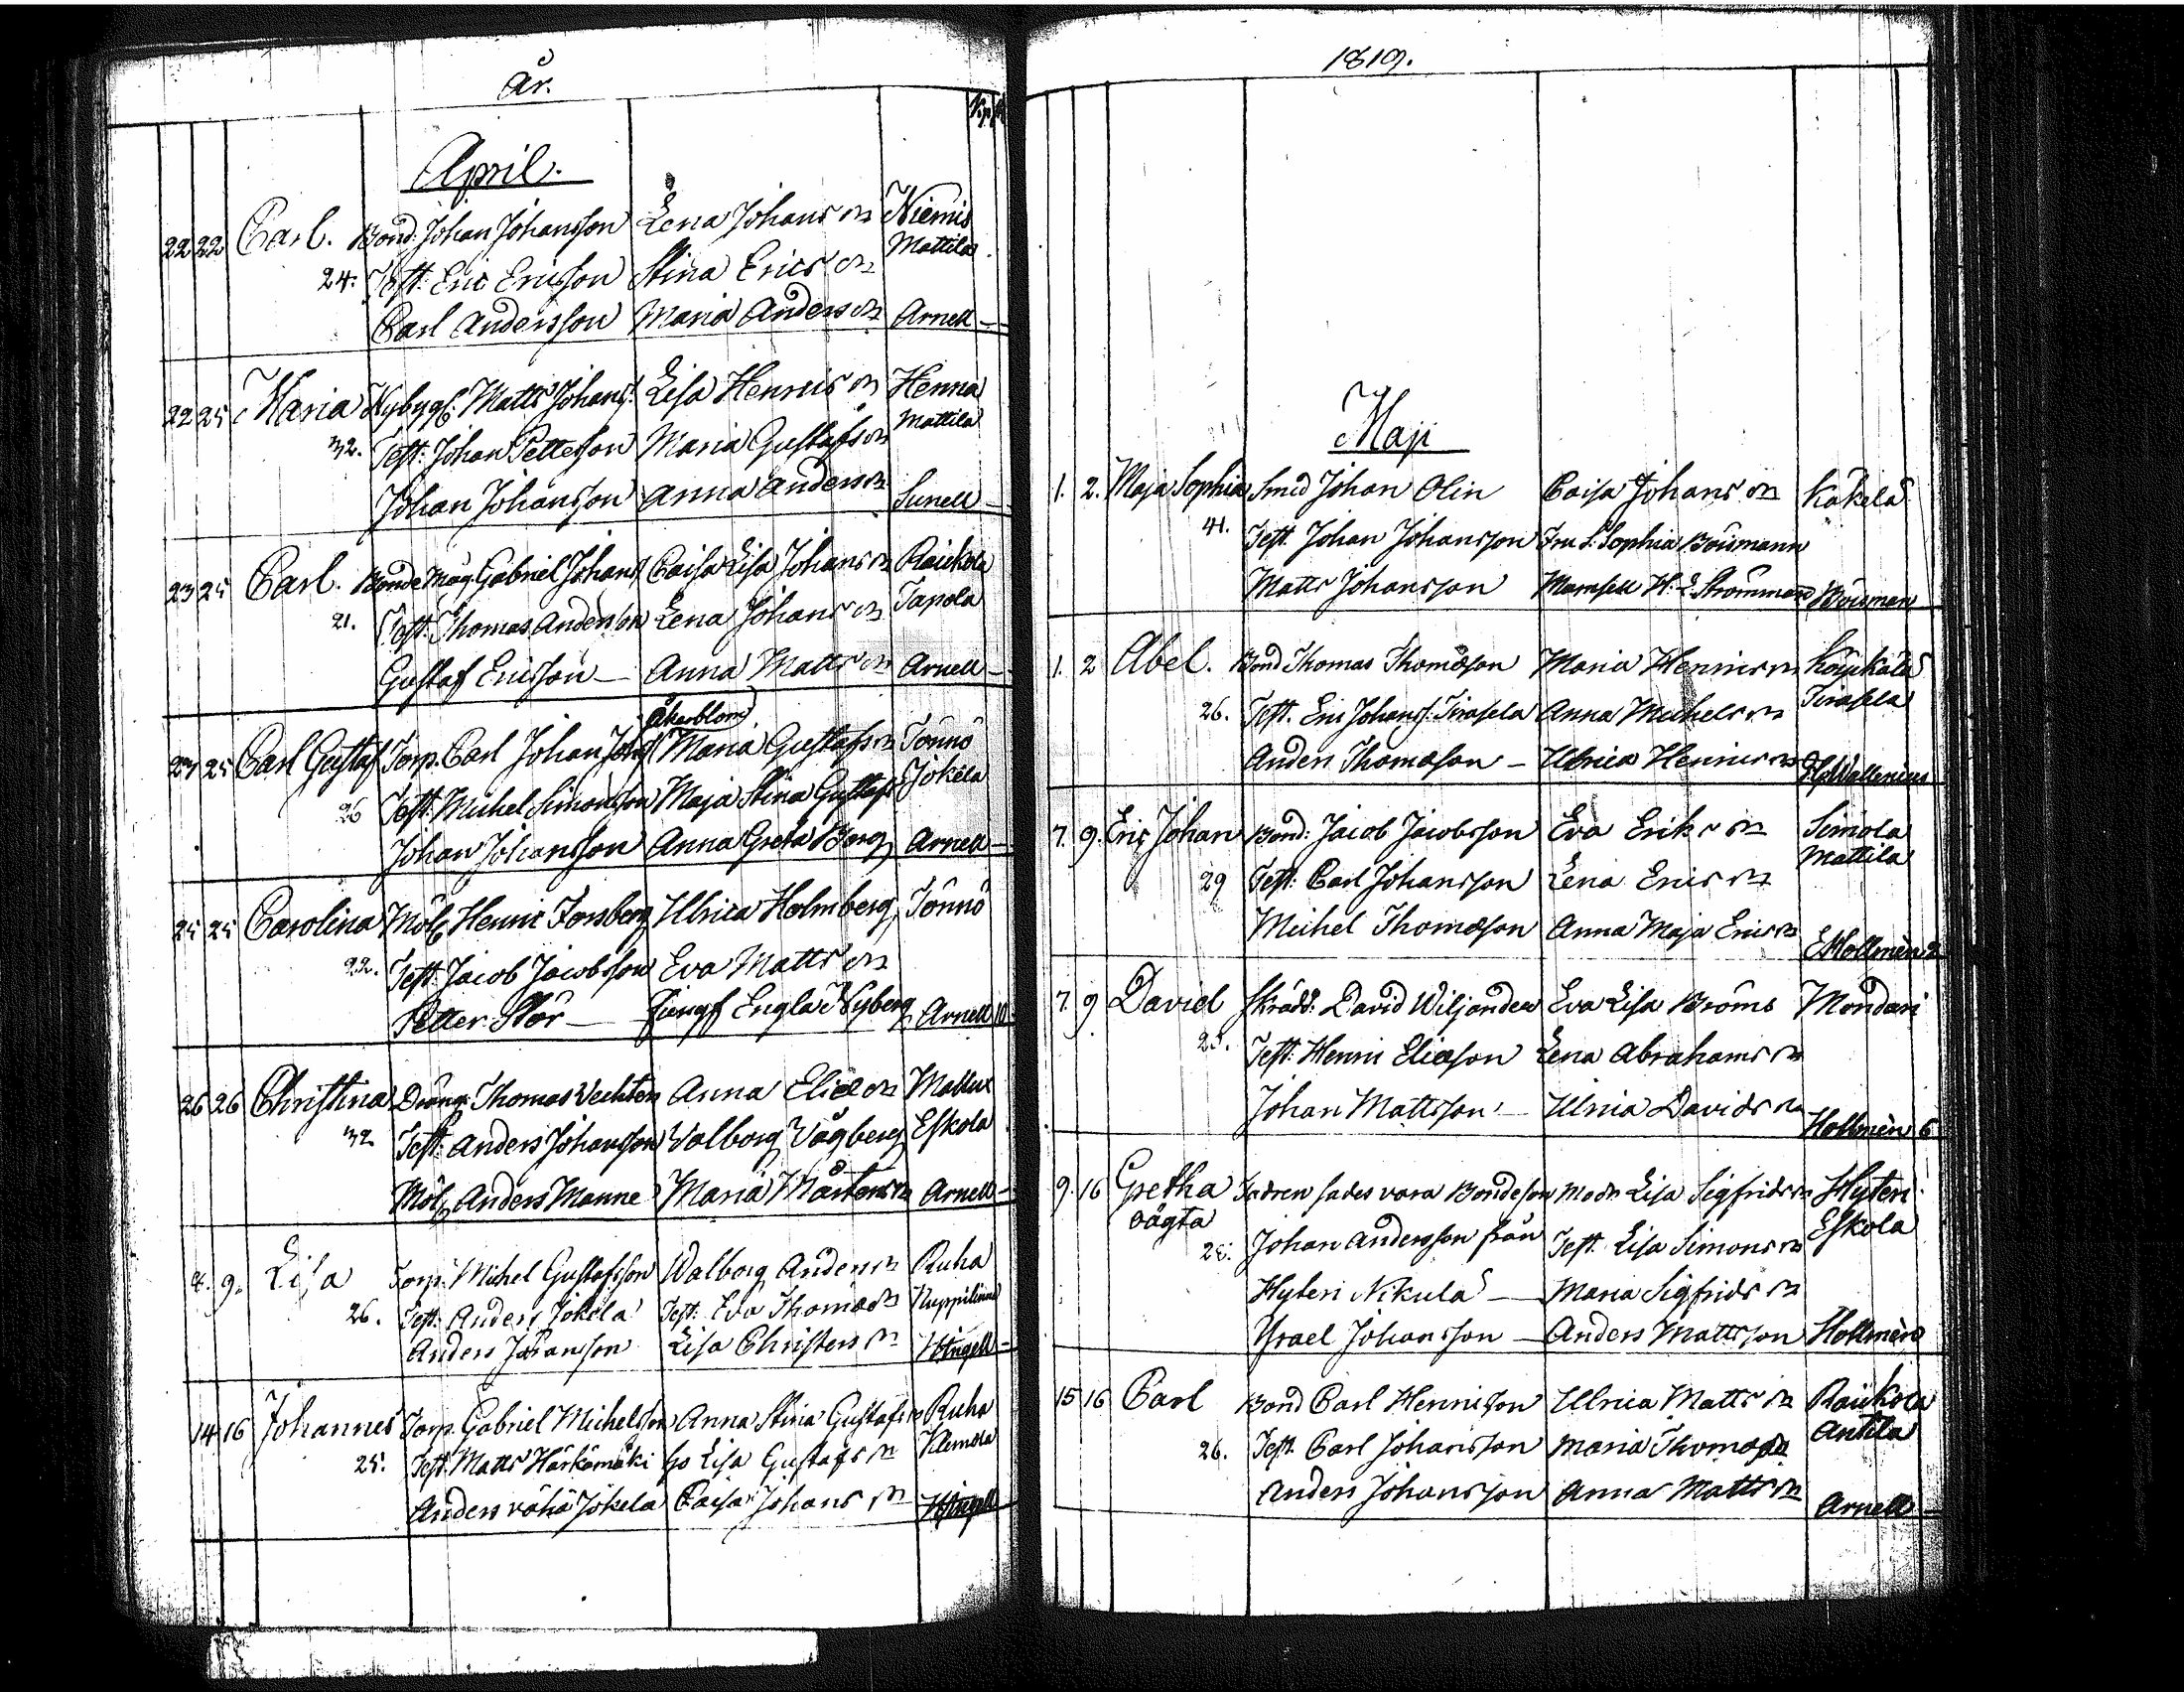 År.
April.
22 22 Carl. Bond: Johan Johansson Lena Johans dr Niemis
Mattila
24. Test: Eric Ericsson Stina Erics dr
Carl Andersson Maria Anders dr Arnell
22 25 Maria Nybygg: Matts Johans: Lisa Henrics dr Henna
Mattila
32. Test: Johan Pettersson Maria Gustafs dr
Johan Johansson Anna Anders dr Sunell
23 25 Carl. Bonde Måg. Gabriel Johans: Caisa Lisa Johans dr Raickola
21. Test: Thomas Andersson Lena Johans dr Tapola
Gustaf Ericsson Anna Matts dr Arnell
Åkerblom
23 25 Carl Gustaf Torp. Carl Johan Johans: Maria Gustafs dr Tönnö
26 Test: Michel Simonsson Maja Stina Gustafs Jokela
Johan Johansson Anna Greta Berg Arnell
25 25 Carolina Möln: Henric Forsberg Ulrica Holmberg Tönnö
22. Test: Jacob Jacobsson Eva Matts dr
Petter Stör Jungf Engla Nyberg Arnell 10
26 26 Christina Dräng: Thomas Anna Elias dr
32 Test: Anders Johansson Valborg Vågberg Eskola
Möln: Anders Manne Maria Mårtens dr Arnell
4. 9. Lisa Torp: Michel Gustafsson Walborg Anders dr Ruha
26. Test: Anders Jokela Test: Eva Thomas dr
Anders Johansson Lisa Christers dr
14 16 Johannes Torp. Gabriel Michelsson Anna Stina Gustafs dr Ruha
25. Test: Matts Härkämäki Lisa Gustafs dr Klemola
Anders vähä Jokela Caisa Johans dr
1819.
Maji
1. 2. Maja Sophia Smed Johan Olin Caisa Johans dr Käkelä
41. Test. Johan Johansson Fru L: Sophia Boismann
Matts Johansson Mamsell H: L Strömmand Boisman
1. 2 Abel. Bond Thomas Thomasson Maria Henrics dr Köykälä
26. Test. Eric Johans: Tirasela Anna Michels dr Tirasela
Anders Thomasson Ulrica Henrics dr Wallenius
7. 9. Eric Johan Bond: Jacob Jacobsson Eva Eriks dr Simola
Mattila
29 Test: Carl Johansson Lena Erics dr
Michel Thomasson Anna Maja Erics dr Hollmén 2
7. 9 David Skrädd: David Wiljander Eva Lisa Broms Mondari
25. Test: Henric Eliasson Lena Abrahams dr
Johan Mattsson Ulrica Davids dr Hollmén 6
9. 16 Gretha Fadren sades vara Bondeson Modr: Lisa Sigfrids dr Hyteri
oägta Eskola
28. Johan Andersson från Test. Lisa Simons dr
Hyteri Nikula Maria Sigfrids dr
Israel Johansson Anders Mattsson Hollmén
15 16 Carl Bond Carl Henricsson Ulrica Matts dr Raickola
26. Test. Carl Johansson Maria Thomas dr Antila
Anders Johansson Anna Matts dr Arnell